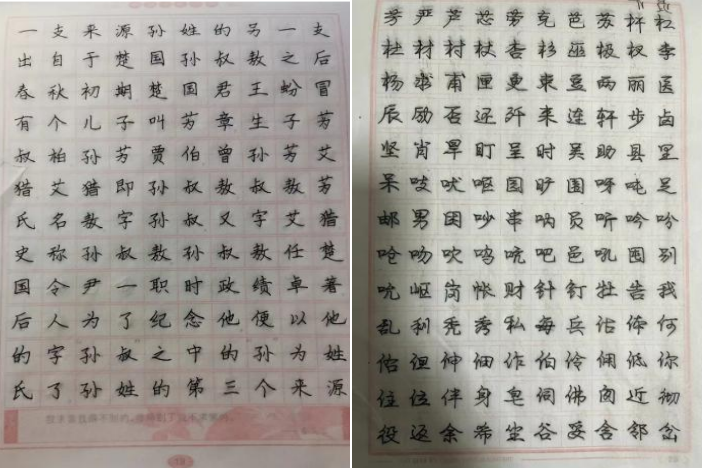 一支来源孙姓的另一支
出自于楚国孙叔敖之后
春秋初期楚国君王蚡冒
有个儿子叫艿章生子艿
叔柏孙艿贾伯曾孙艿艾
猎艾猎即孙叔敖叔敖艿
氏名敖字孙叔又字艾猎
史称孙叔敖孙叔敖任楚
国令尹一职时政绩卓著
后人为了纪念他便以他
的字孙叔之中的孙为姓
氏了孙姓的第三个来源
芳严芦芯劳克芭苏杆杠
杜材村杖杏杉巫极杈李
杨求甫匣更束豆两丽医
辰励否还歼来连轩步卤
坚肖旱盯呈时吴助县里
呆吱吠呕园旷围呀吨足
邮男困吵串呐员听吟吩
呛吻吹鸣吭吧邑吼囤别
吮岖岗帐财针钉牡告我
乱利秃秀私每兵估体何
佑但伸佃作伯伶佣低你
住位伴身皂伺佛囱近彻
役返余希坐谷妥含邻岔